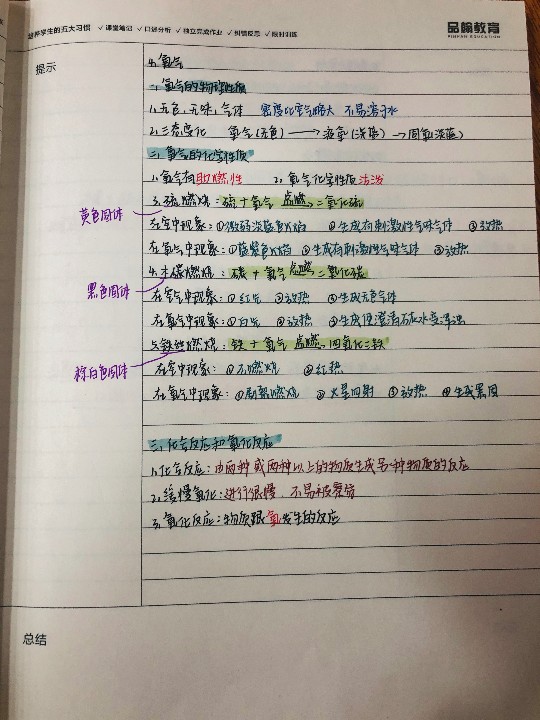 培养学生的五大习惯 ✓课堂笔记 ✓口述分析 ✓独立完成作业 ✓纠错反思 ✓限时训练
品翰教育
PINHAN EDUCATION
提示
4. 氧气
一、氧气的物理性质
1. 无色、无味、气体 密度比空气略大 不易溶于水
2. 三态变化 氧气(无色) → 液氧(淡蓝) → 固氧(淡蓝)
二、氧气的化学性质
1. 氧气有助燃性 2. 氧气化学性质活泼
3. 硫燃烧：硫+氧气 点燃 二氧化硫
黄色固体
在空中现象：①微弱淡蓝色火焰 ②生成有刺激性气味气体 ③放热
在氧气中现象：①蓝紫色火焰 ②生成有刺激性气味气体 ③放热
4. 木碳燃烧：碳+氧气 点燃 二氧化碳
黑色固体
在空气中现象：①红光 ②放热 ③生成无色气体
在氧气中现象：①白光 ②放热 ③生成使澄清石灰水变浑浊
5. 铁丝燃烧：铁+氧气 点燃 四氧化三铁
银白色固体
在空中现象：①不燃烧 ②红热
在氧气中现象：①剧烈燃烧 ②火星四射 ③放热 ④生成黑固
三、化合反应和氧化反应
1. 化合反应：由两种或两种以上的物质生成另一种物质的反应
2. 缓慢氧化：进行很慢，不易被察觉
3. 氧化反应：物质跟氧发生的反应
总结